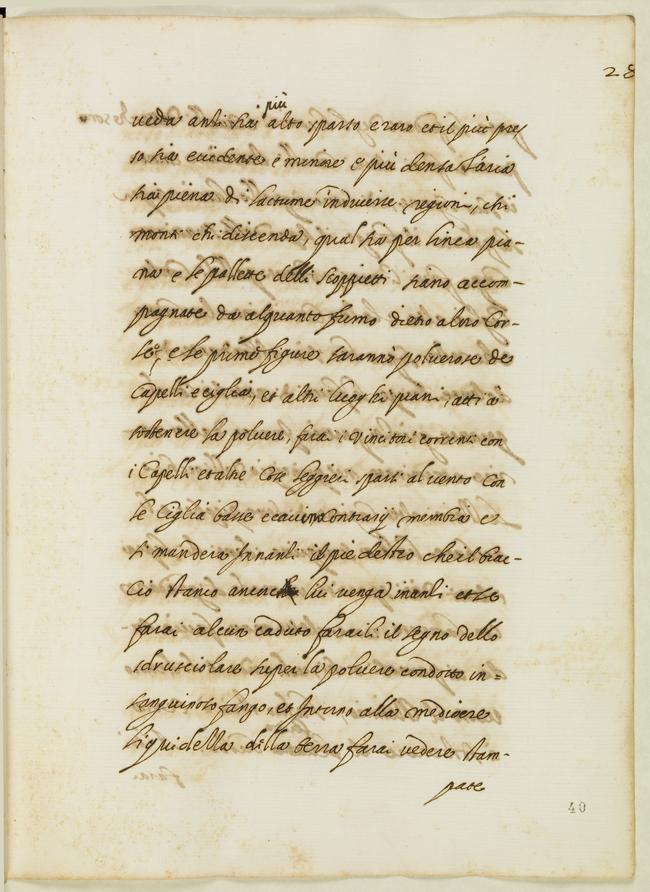 28
più
ueda anti sia alto sparso e raro et il più pres
so sia euidente e minore e più densa L'aria
sia piena di saettume in diuerse regioni, chi
monti chi discenda, qual sia per linea pia-
na e le pallotte delli scoppietti siano accom-
pagnate da alquanto fumo dietro al vro Cor-
so, e le prime figure saranno poluerose de
Capelli e ciglia, et altri luoghi piani, atti a
sostenere la poluere, farai i Vincitori correnti con
i Capelli et altre Cose leggieri sparti al vento Con
le Ciglia basse e cacci contrarij membra e
si mandera Innanti il pie destro che il brac-
cio stanco ancor lui venga inanti et se
farai alcun caduto faraili il segno dello
sdrusciolare su per la poluere condotto in=
sanguinoso fango, et Intorno alla mediocre
liquidella della terra farai vedere stam-
pate
40